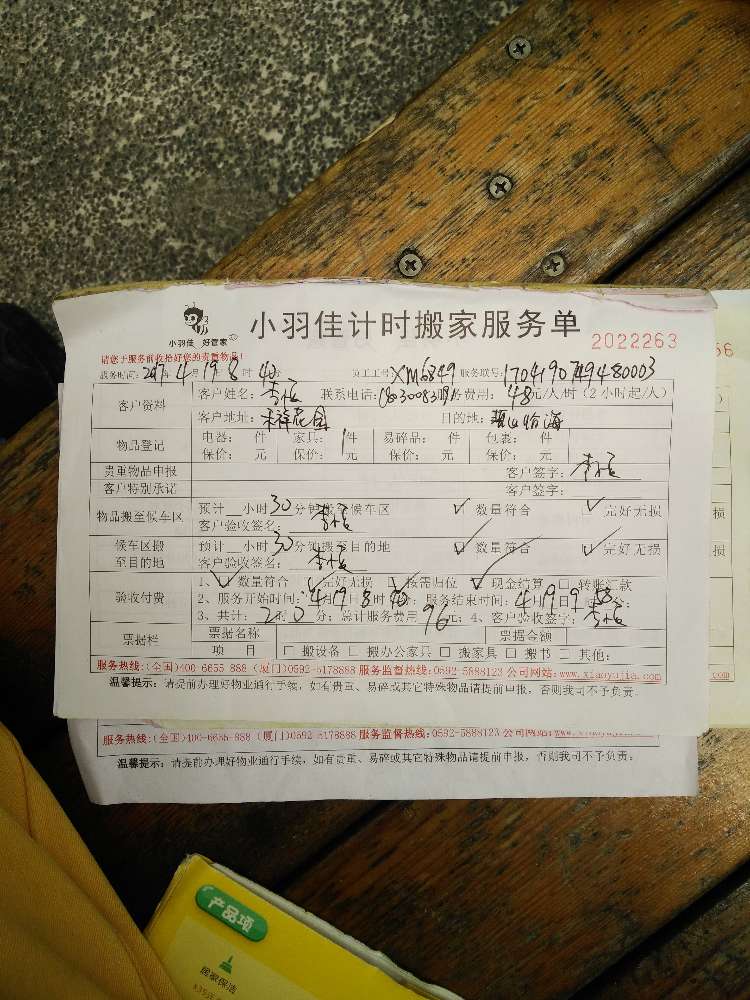 小羽佳 好管家
小羽佳计时搬家服务单
2022263
请您于服务前收拾好您的贵重物品!
服务时间: 2017年4月19日8时40 员工工号XM6849 服务联号: 1704190749480003
客户资料
客户姓名: 联系电话: 服务费用: 48元/人/时 (2小时起/人)
客户地址: 花园 目的地:
物品登记
电器: 件 家具: 1件 易碎品: 件 包裹: 件
保价: 元 保价: 元 保价: 元 保价: 元
贵重物品申报 客户签字:
客户特别承诺 客户签字:
物品搬至候车区
预计__小时30分钟搬至候车区 ☑ 数量符合 ☑ 完好无损
客户验收签名:
候车区搬至目的地
预计__小时30分钟搬至目的地 ☑ 数量符合 ☑ 完好无损
客户验收签名:
验收付费
1、☑ 数量符合 ☑ 完好无损 ☑ 按需归位 ☑ 现金结算 □ 转账汇款
2、服务开始时间: 4月19日8时40分; 服务结束时间: 4月19日9时58分;
3、共计: 2时0分; 总计服务费用 96元; 4、客户验收签字:
票据栏
票据名称 票据金额
项 目 □ 搬设备 □ 搬办公家具 □ 搬家具 □ 搬书 □ 其他:
服务热线:(全国)400-6655-888 (厦门)0592-5178888 服务监督热线:0592-5888123 公司网站:www.xiaoyujia.com
温馨提示: 请提前办理好物业通行手续, 如有贵重、易碎或其它特殊物品请提前申报, 否则我司不予负责.
服务热线:(全国)400-6655-888 (厦门)0592-5178888 服务监督热线:0592-5888123 公司网站:www.
温馨提示: 请提前办理好物业通行手续, 如有贵重、易碎或其它特殊物品请提前申报, 否则我司不予负责.
损
损
产品项
居家保洁